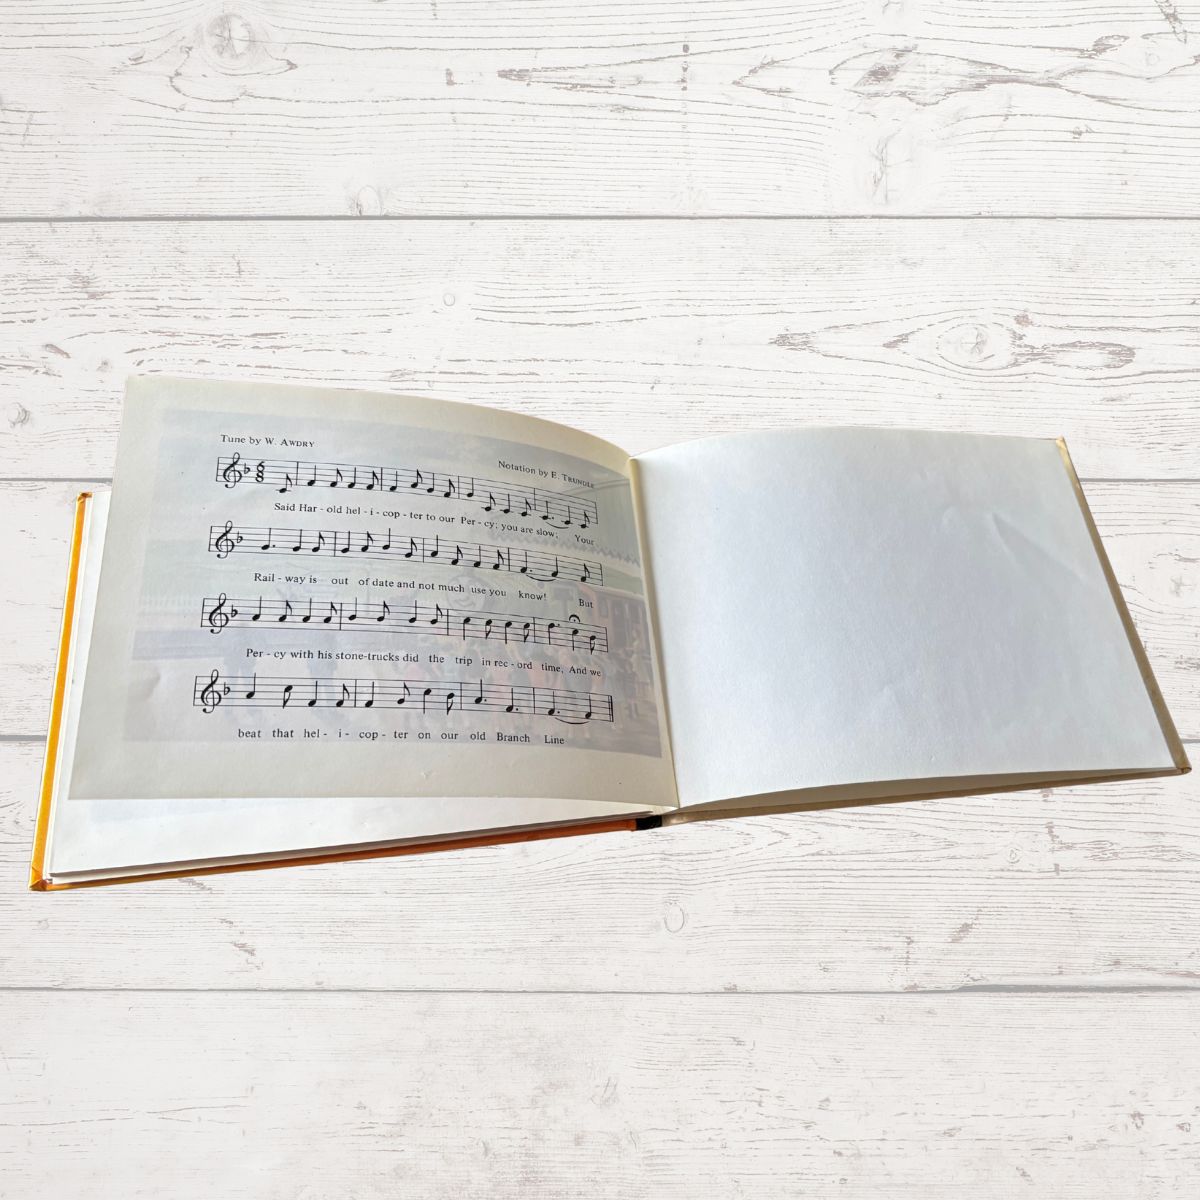 Tune by W. AWDRY
Notation by E. TRUNDLE
Said Har - old hel - i - cop - ter to our Per - cy; you are slow; Your
Rail - way is out of date and not much use you know! But
Per - cy with his stone-trucks did the trip in rec - ord time, And we
beat that hel - i - cop - ter on our old Branch Line